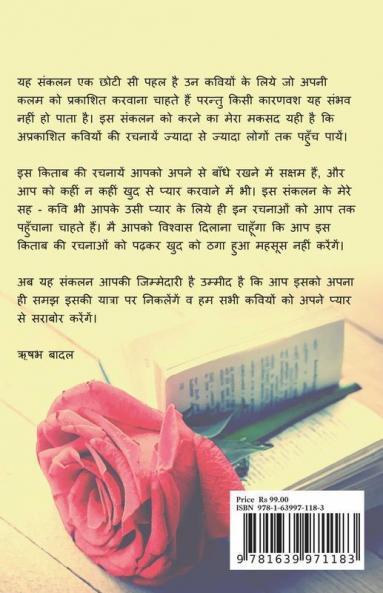 यह संकलन एक छोटी सी पहल है उन कवियों के लिये जो अपनी
कलम को प्रकाशित करवाना चाहते हैं परन्तु किसी कारणवश यह संभव
नहीं हो पाता है। इस संकलन को करने का मेरा मकसद यही है कि
अप्रकाशित कवियों की रचनायें ज्यादा से ज्यादा लोगों तक पहुँच पायें।
इस किताब की रचनायें आपको अपने से बाँधे रखने में सक्षम हैं, और
आप को कहीं न कहीं खुद से प्यार करवाने में भी। इस संकलन के मेरे
सह - कवि भी आपके उसी प्यार के लिये ही इन रचनाओं को आप तक
पहुँचाना चाहते हैं। मै आपको विश्वास दिलाना चाहूँगा कि आप इस
किताब की रचनाओं को पढ़कर खुद को ठगा हुआ महसूस नहीं करेंगें।
अब यह संकलन आपकी जिम्मेदारी है उम्मीद है कि आप इसको अपना
ही समझ इसकी यात्रा पर निकलेंगें व हम सभी कवियों को अपने प्यार
से सराबोर करेंगें।
ऋषभ बादल
Price Rs 99.00
ISBN 978-1-63997-118-3
9 781639 971183